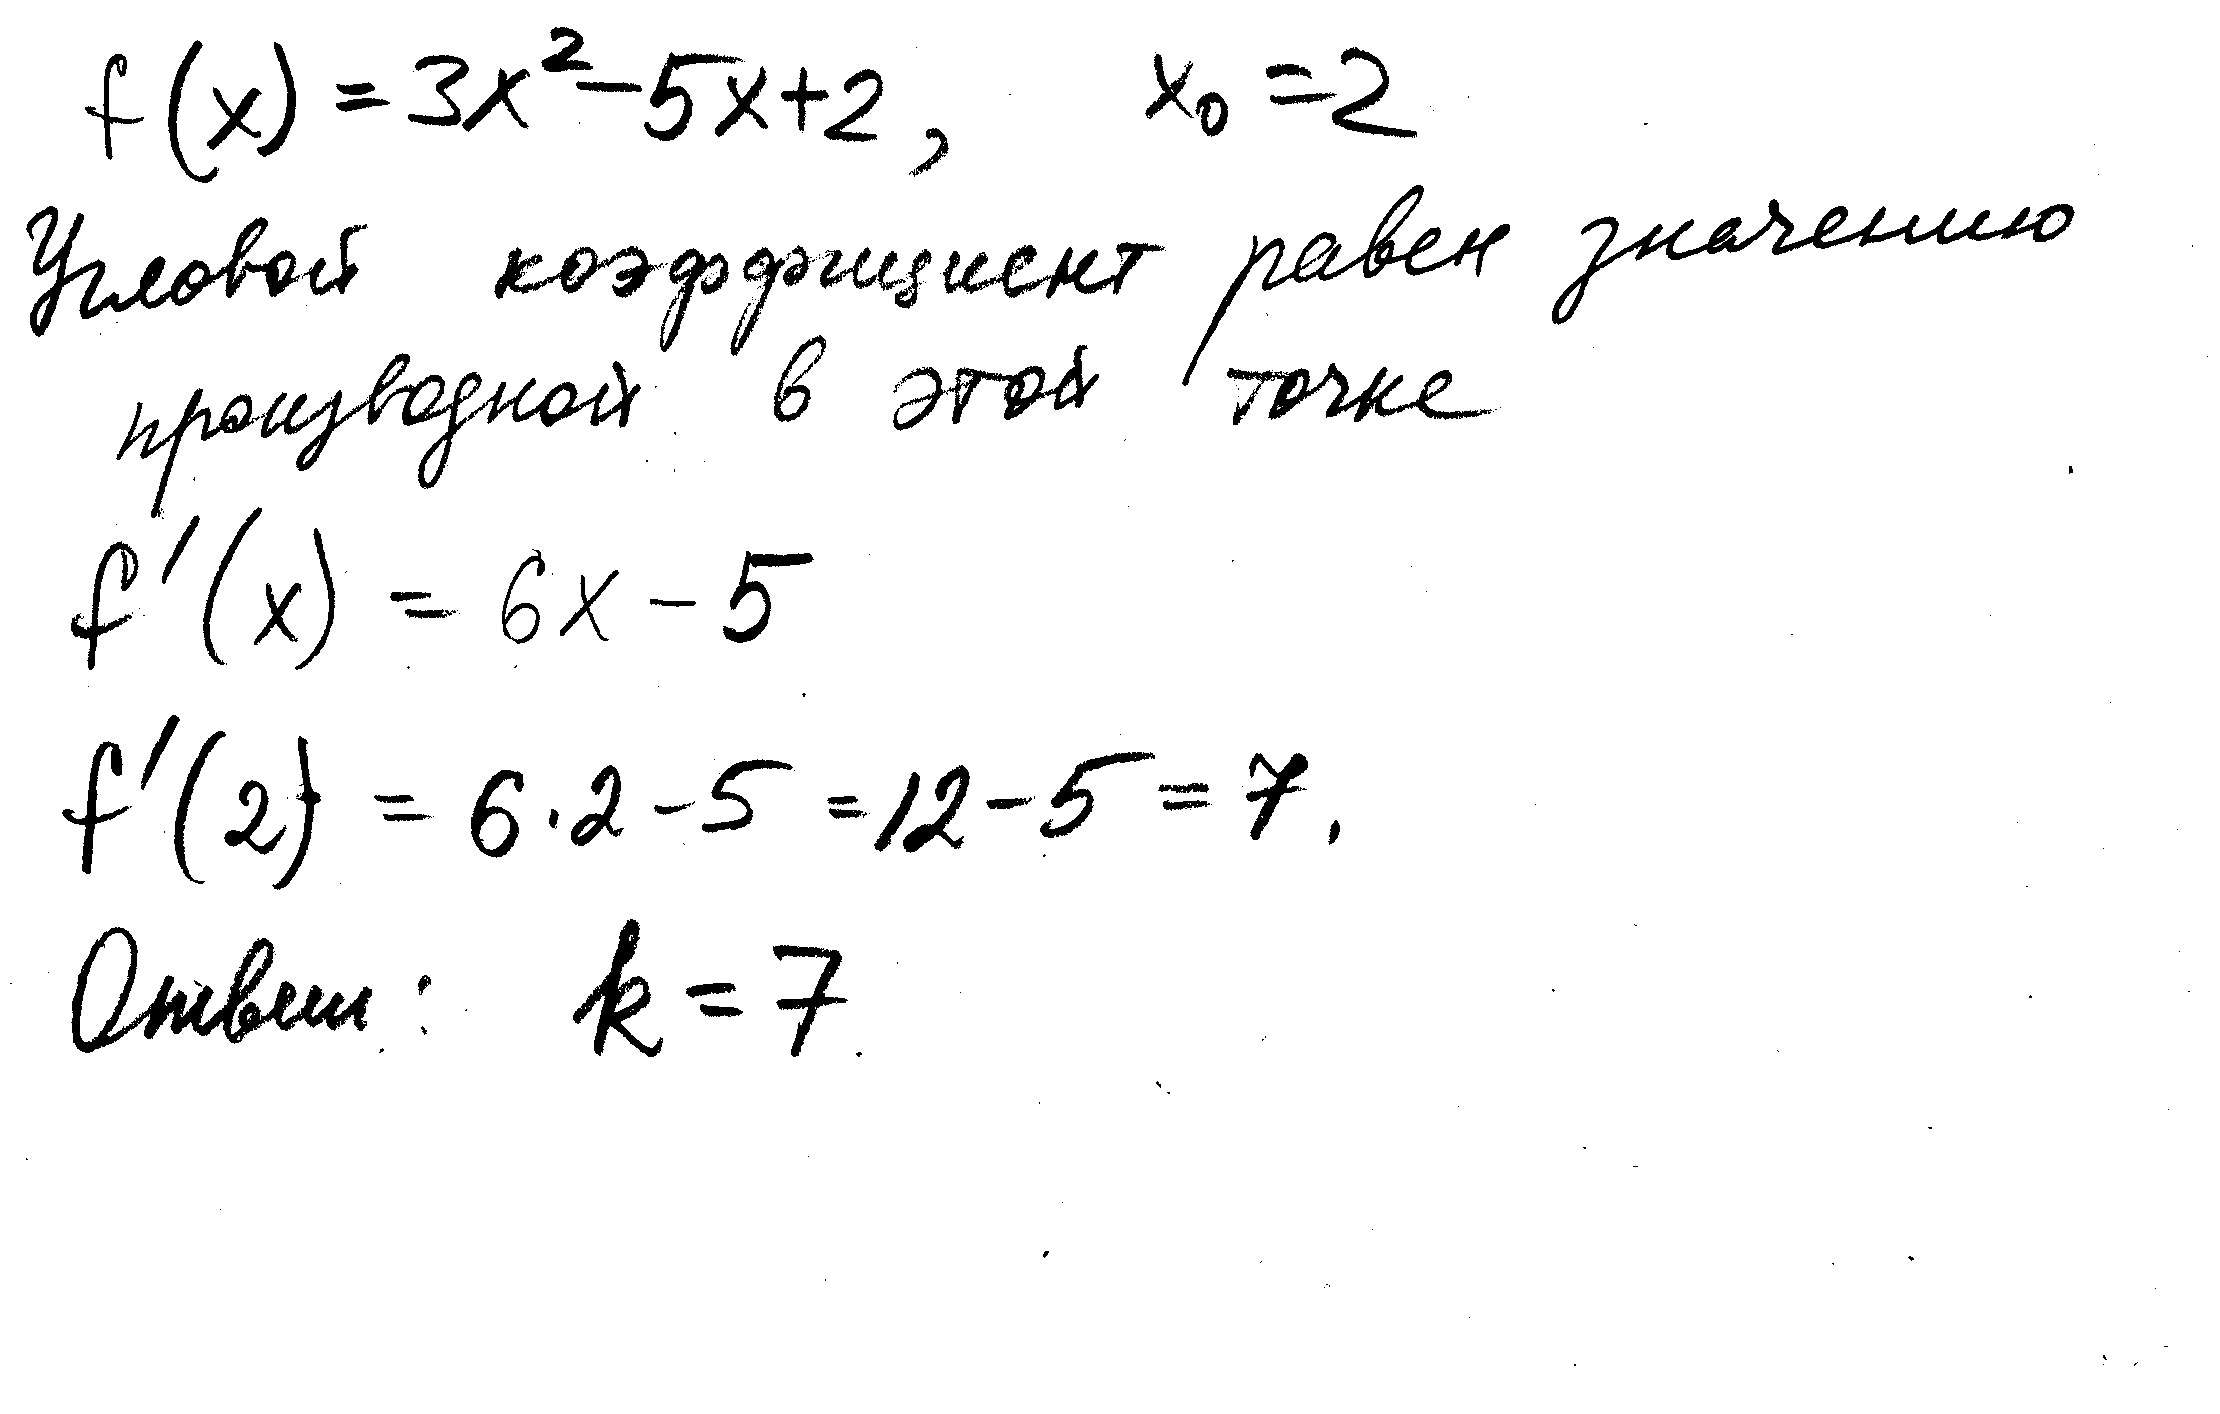 f(x) = 3x² - 5x + 2, x₀ = 2
Угловой коэффициент равен значению
производной в этой точке
f'(x) = 6x - 5
f'(2) = 6·2 - 5 = 12 - 5 = 7.
Ответ: k = 7.